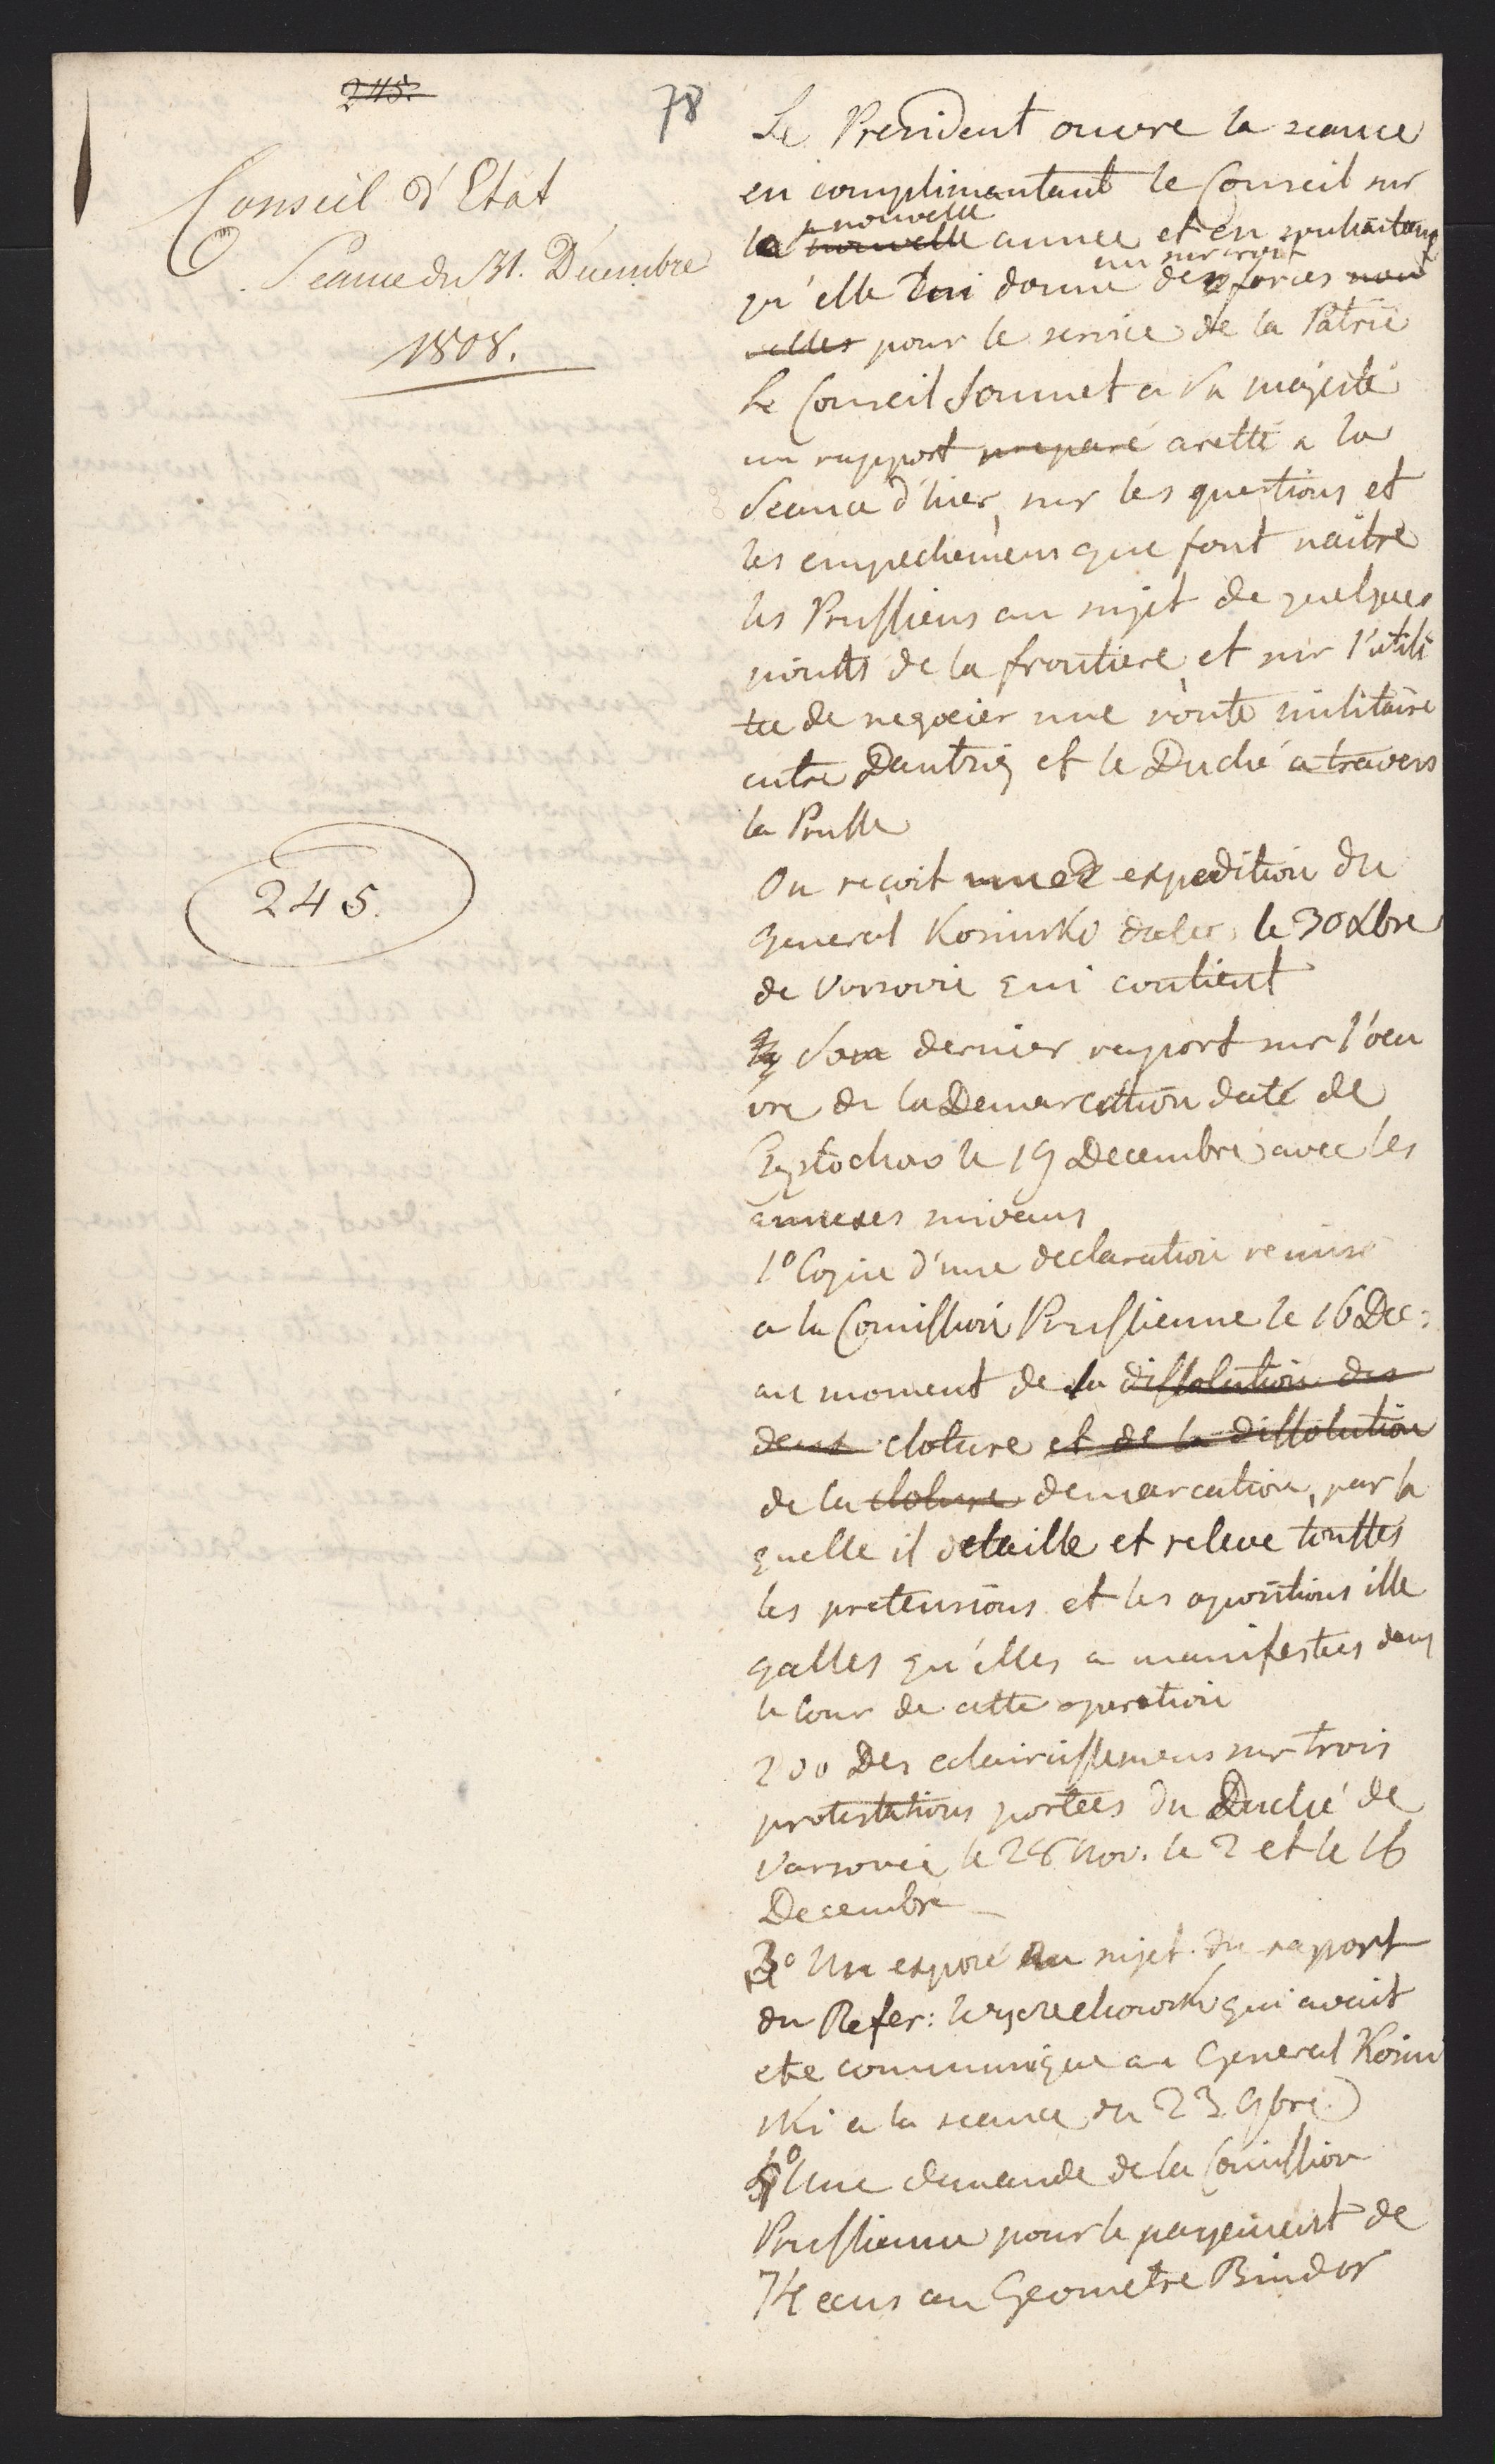 245.
78
Conseil d'Etat
Seance du 31. Decembre
1808.
245.
Le President ouvre la seance
en complimentant le Conseil sur
la nouvelle nouvelle année et en souhaitant
qu'elle lui donne un surcroit de forces nou
velles pour le service de la Patrie
Le Conseil soumet a Sa majesté
un rapport preparé aretté a la
Seance d'hier, sur les questions et
les empechemens que font naitre
les Prussiens au sujet de quelques
points de la frontiere, et sur l'utili
tée de negocier une route militaire
entre Dantzig et le Duché a travers
la Prusse
On reçoit une expedition du
general Kosinski datée le 30 Xbre
de Varsovie qui contient
Son dernier raport sur l'oeu
vre de la Demarcation daté de
le 19 Decembre avec les
annexes suivans
1º Copie d'une declaration remise
a la Comission Prussienne le 16 Dec:
au moment de la dissolution des
deux cloture et de la dissolution
de la cloture demarcation, par la
quelle il detaille et releve touttes
les pretensions et les opositions ille
galles qu'elles a manifestées dans
le Cour de cette operation
2do Des eclaircissemens sur trois
protestations portées du Duché de
Varsovie le 28 Nov. le 2 et le 16
Decembre
3º Un exposé au sujet du raport
du Refer: Wyczechowski qui avait
ete communiqué au General Kosin
ski a la seance du 23 9bre
4º Une demande de la Comission
Prussienne pour le payement de
74 ecus au Geometre Bindor